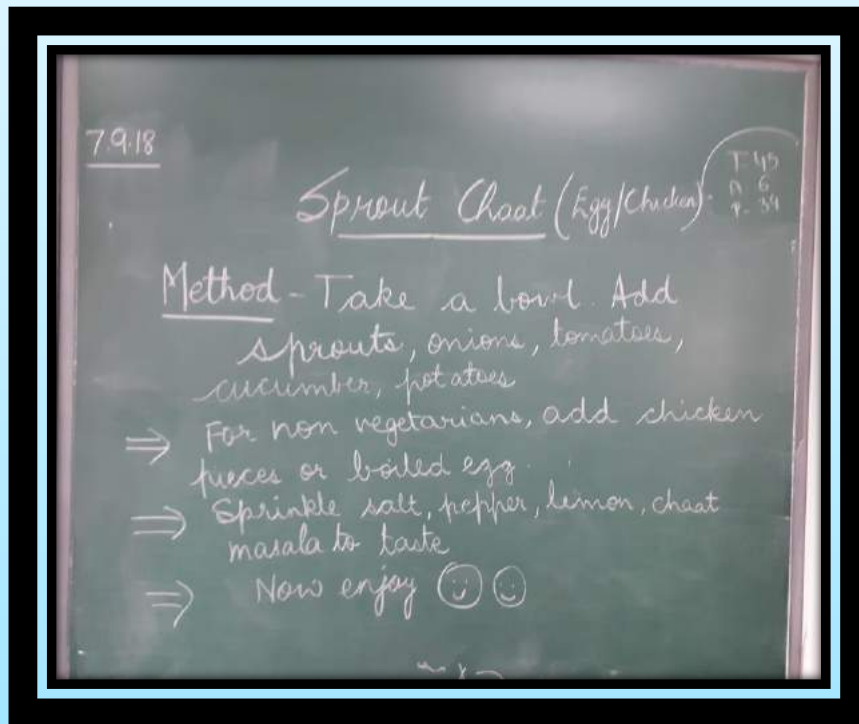 7.9.18
T-45
A 6
P- 39
Sprout Chaat (Egg/Chicken).
Method - Take a bowl. Add
sprouts, onions, tomatoes,
cucumber, potatoes
⇒ For non vegetarians, add chicken
pieces or boiled egg.
⇒ Sprinkle salt, pepper, lemon, chaat
masala to taste
⇒ Now enjoy